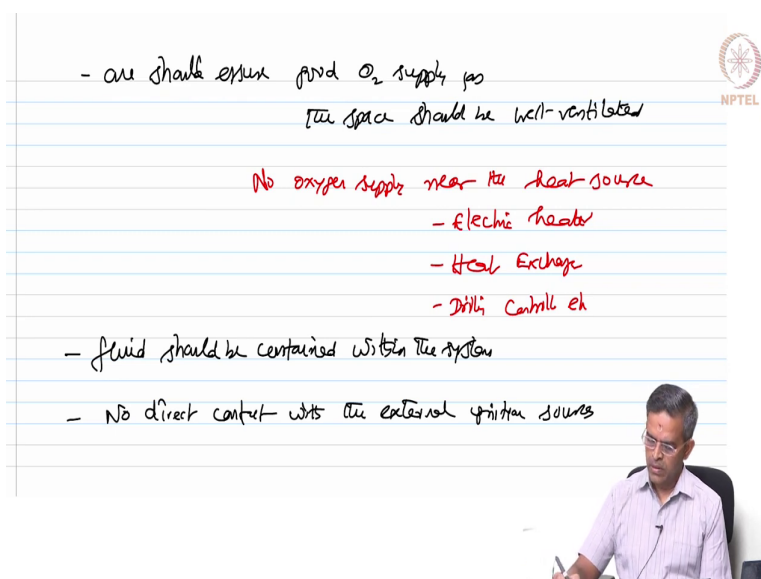 - one should ensure good O2 supply
The space should be well-ventilated
NPTEL
No oxygen supply near the heat source
- Electric heater
- Heat Exchange
- Drilling
- fluid should be contained within the system
- No direct contact with the external ignition source